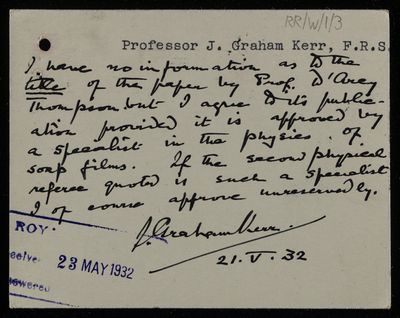 RR/W/1/3
Professor J. Graham Kerr, F.R.S.
I have no information as to the
title of the paper by Prof. D'Arcy
Thompson but I agree to its public-
ation provided it is approved by
a specialist in the physics of
soap films. If the second physical
referee quoted is such a specialist
I of course approve unreservedly.
J. Graham Kerr.
21. V. 32
ROY
eceive
23 MAY 1932
nswered